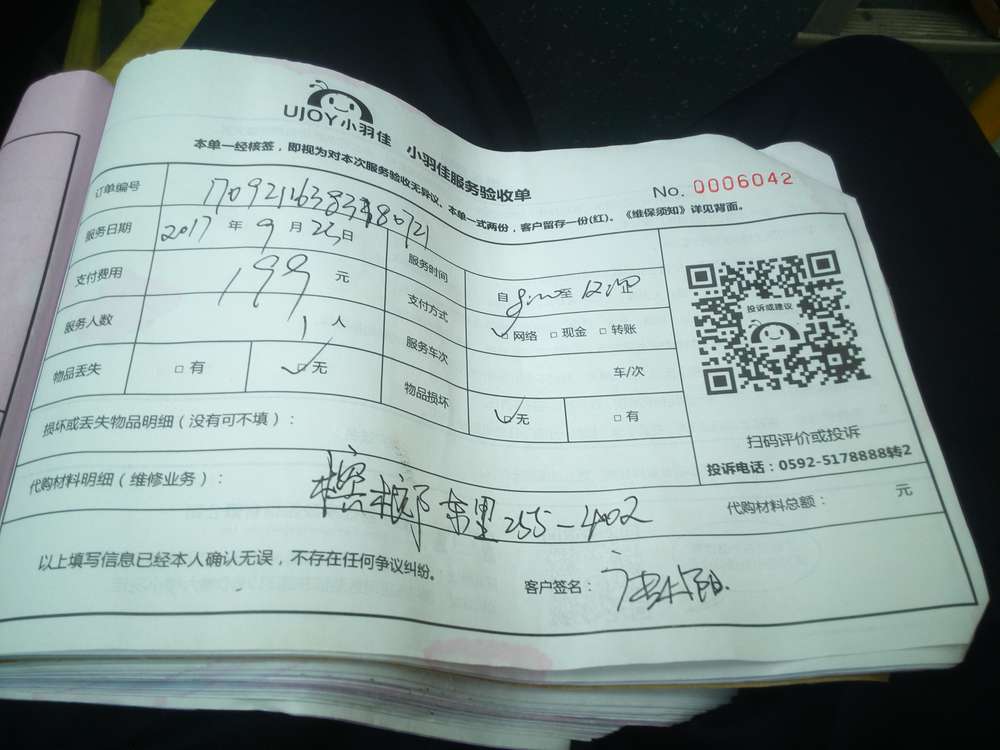 UJOY小羽佳 小羽佳服务验收单
No. 0006042
本单一经核签，即视为对本次服务验收无异议、本单一式两份，客户留存一份(红)。《维保须知》详见背面。
订单编号
服务日期 2017 年 9 月 23 日 服务时间 自 至
支付费用 199 元 支付方式 网络 现金 转账
服务人数 1 人 服务车次 车/次
物品丢失 有 无 物品损坏 无 有
投诉或建议
扫码评价或投诉
投诉电话：0592-5178888转2
损坏或丢失物品明细（没有可不填）：
代购材料明细（维修业务）： 槟榔东里255-402 代购材料总额： 元
以上填写信息已经本人确认无误，不存在任何争议纠纷。
客户签名：